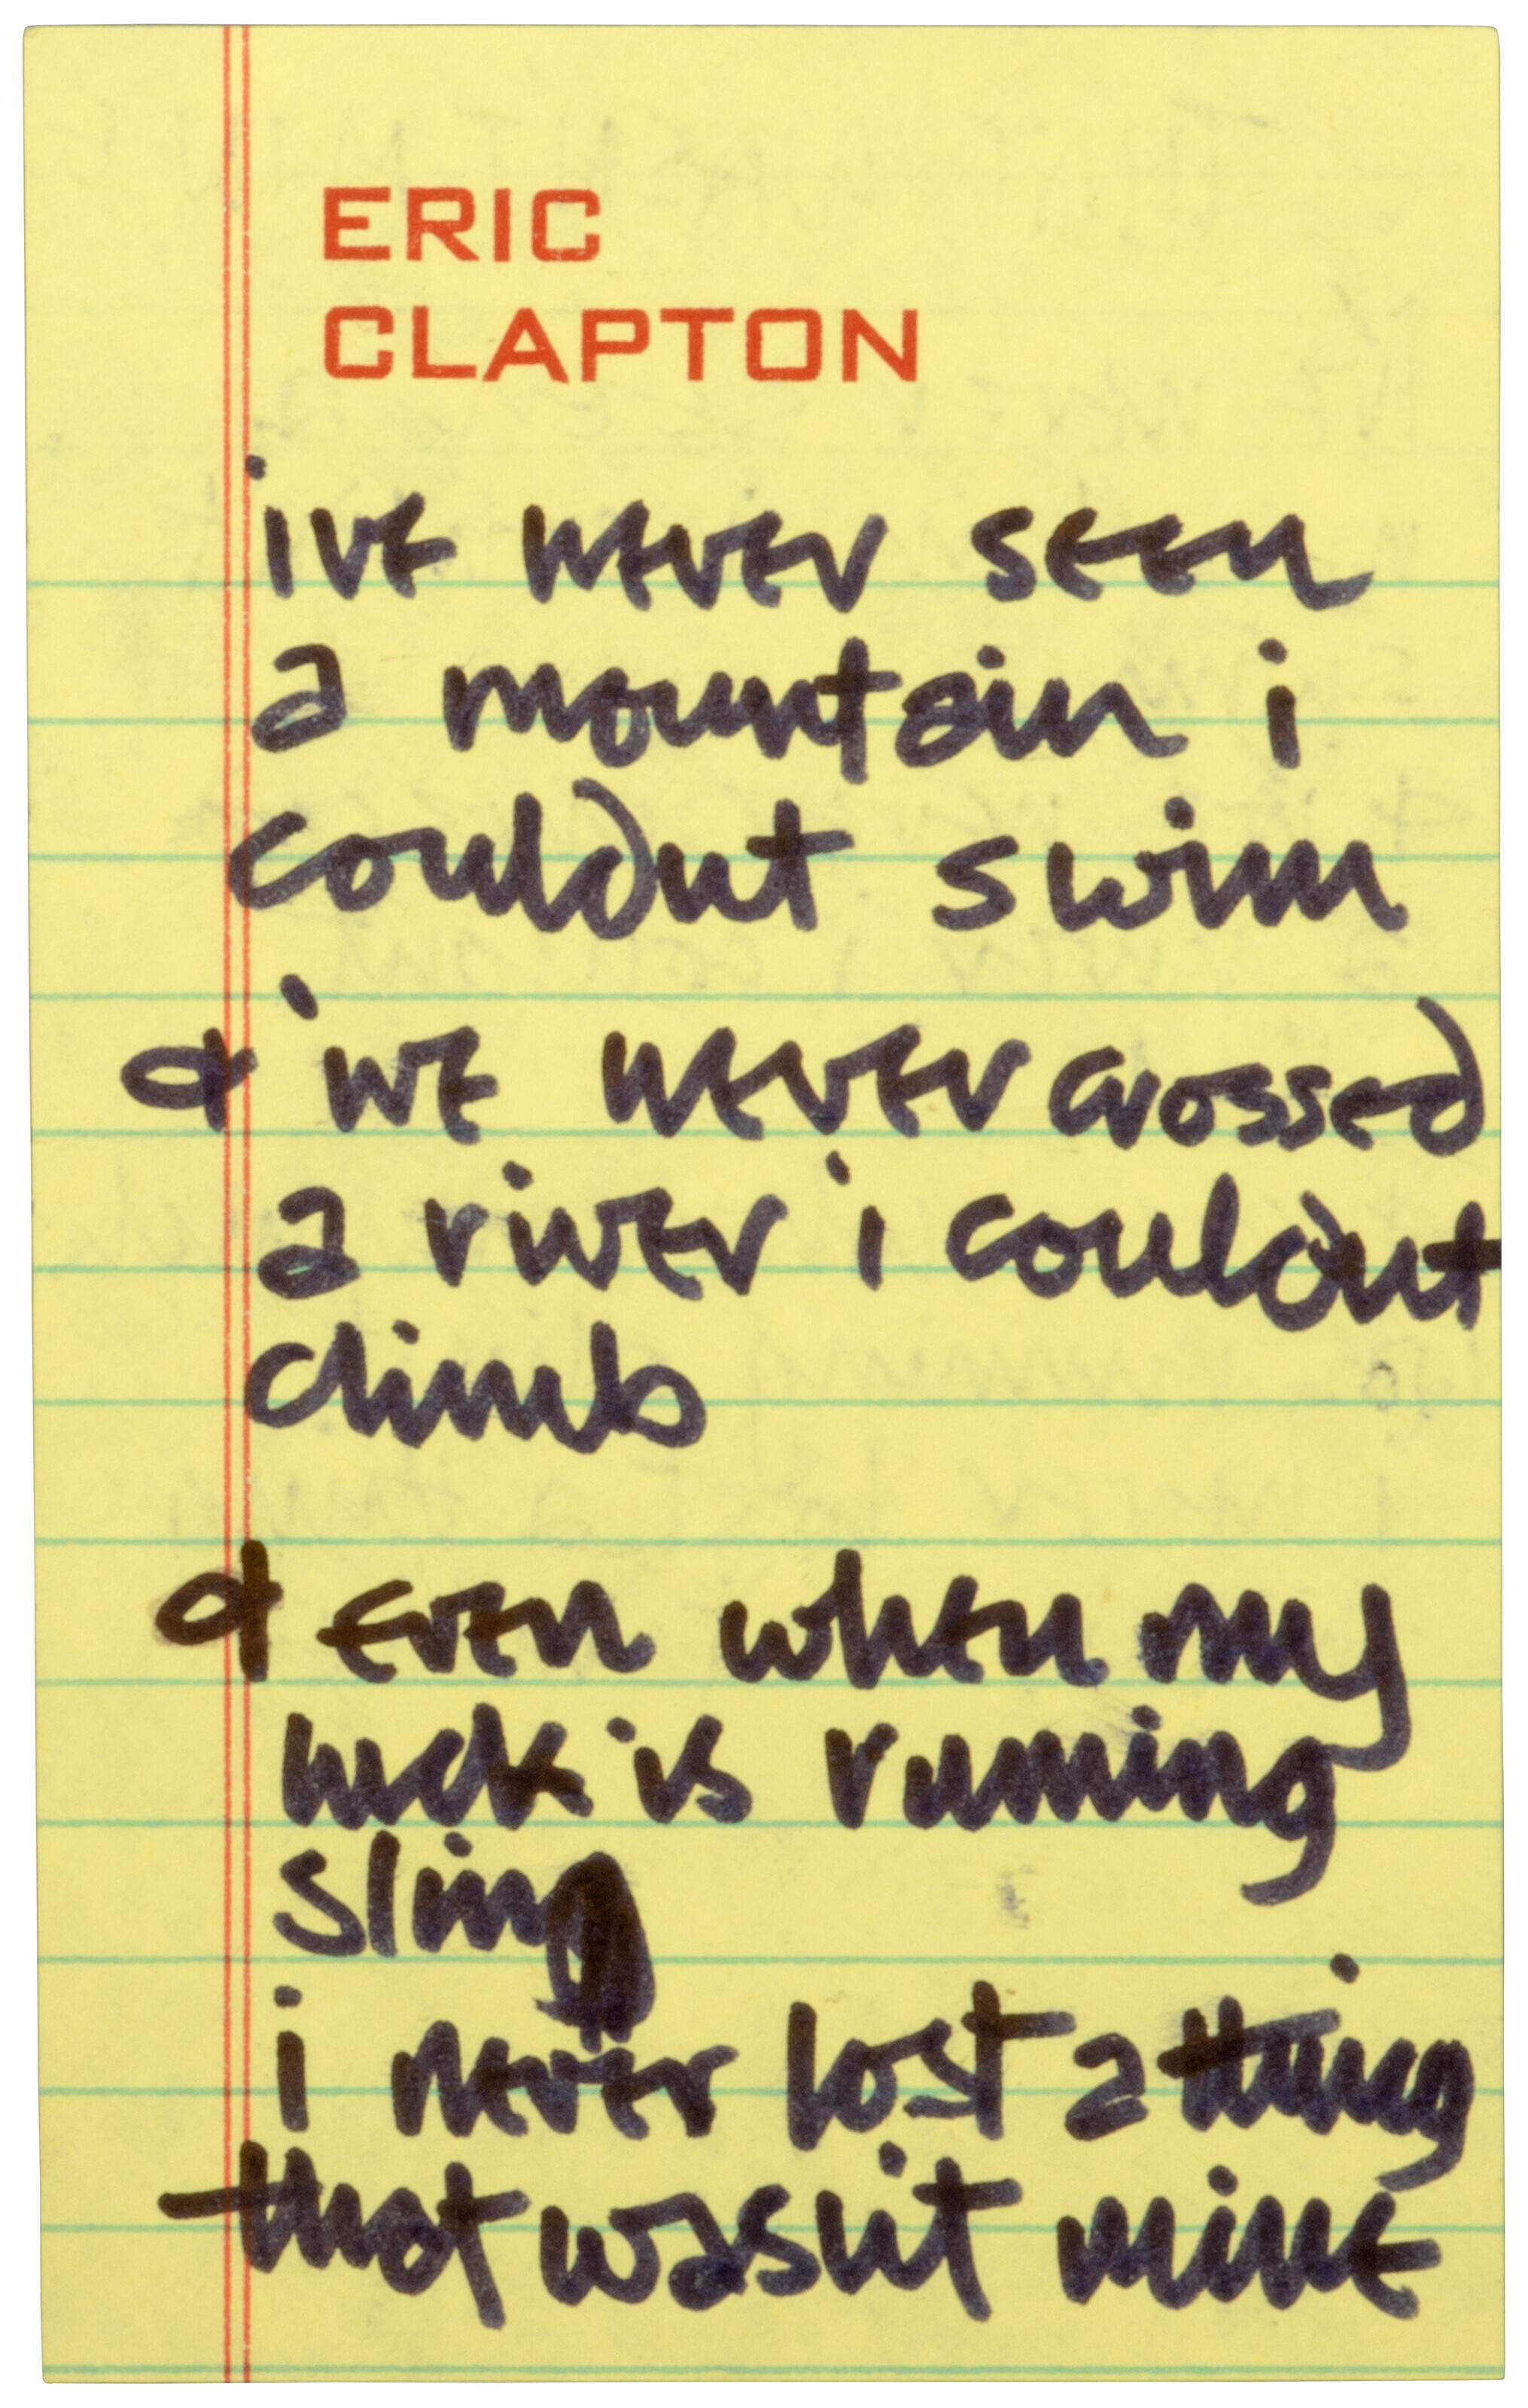 ERIC
CLAPTON
ive never seen
a mountain i
couldnt swim
& ive never crossed
a river i couldnt
climb
& even when my
luck is running
slim
i never lost a thing
that wasnt mine